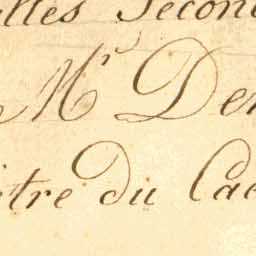 lles Secon
Mr Der
itre Du Cad